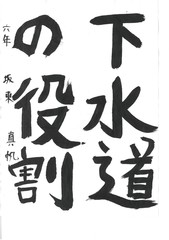 下水道
の役割
六年 坂東 真帆